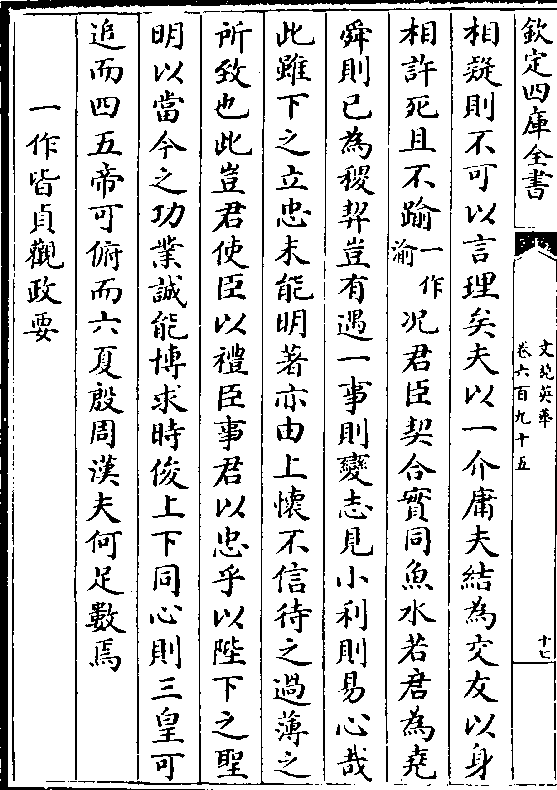 欽定四庫全書
文苑英華
卷六百九十五
十七
相疑則不可以言理矣夫以一介庸夫結為交友以身
相許死且不踰一作渝况君臣契合實同魚水若君為堯
舜則已為稷契豈有遇一事則變志見小利則易心哉
此雖下之立忠未能明著亦由上懷不信待之過薄之
所致也此豈君使臣以禮臣事君以忠乎以陛下之聖
明以當今之功業誠能博求時俊上下同心則三皇可
追而四五帝可俯而六夏殷周漢夫何足數焉
一作皆貞觀政要